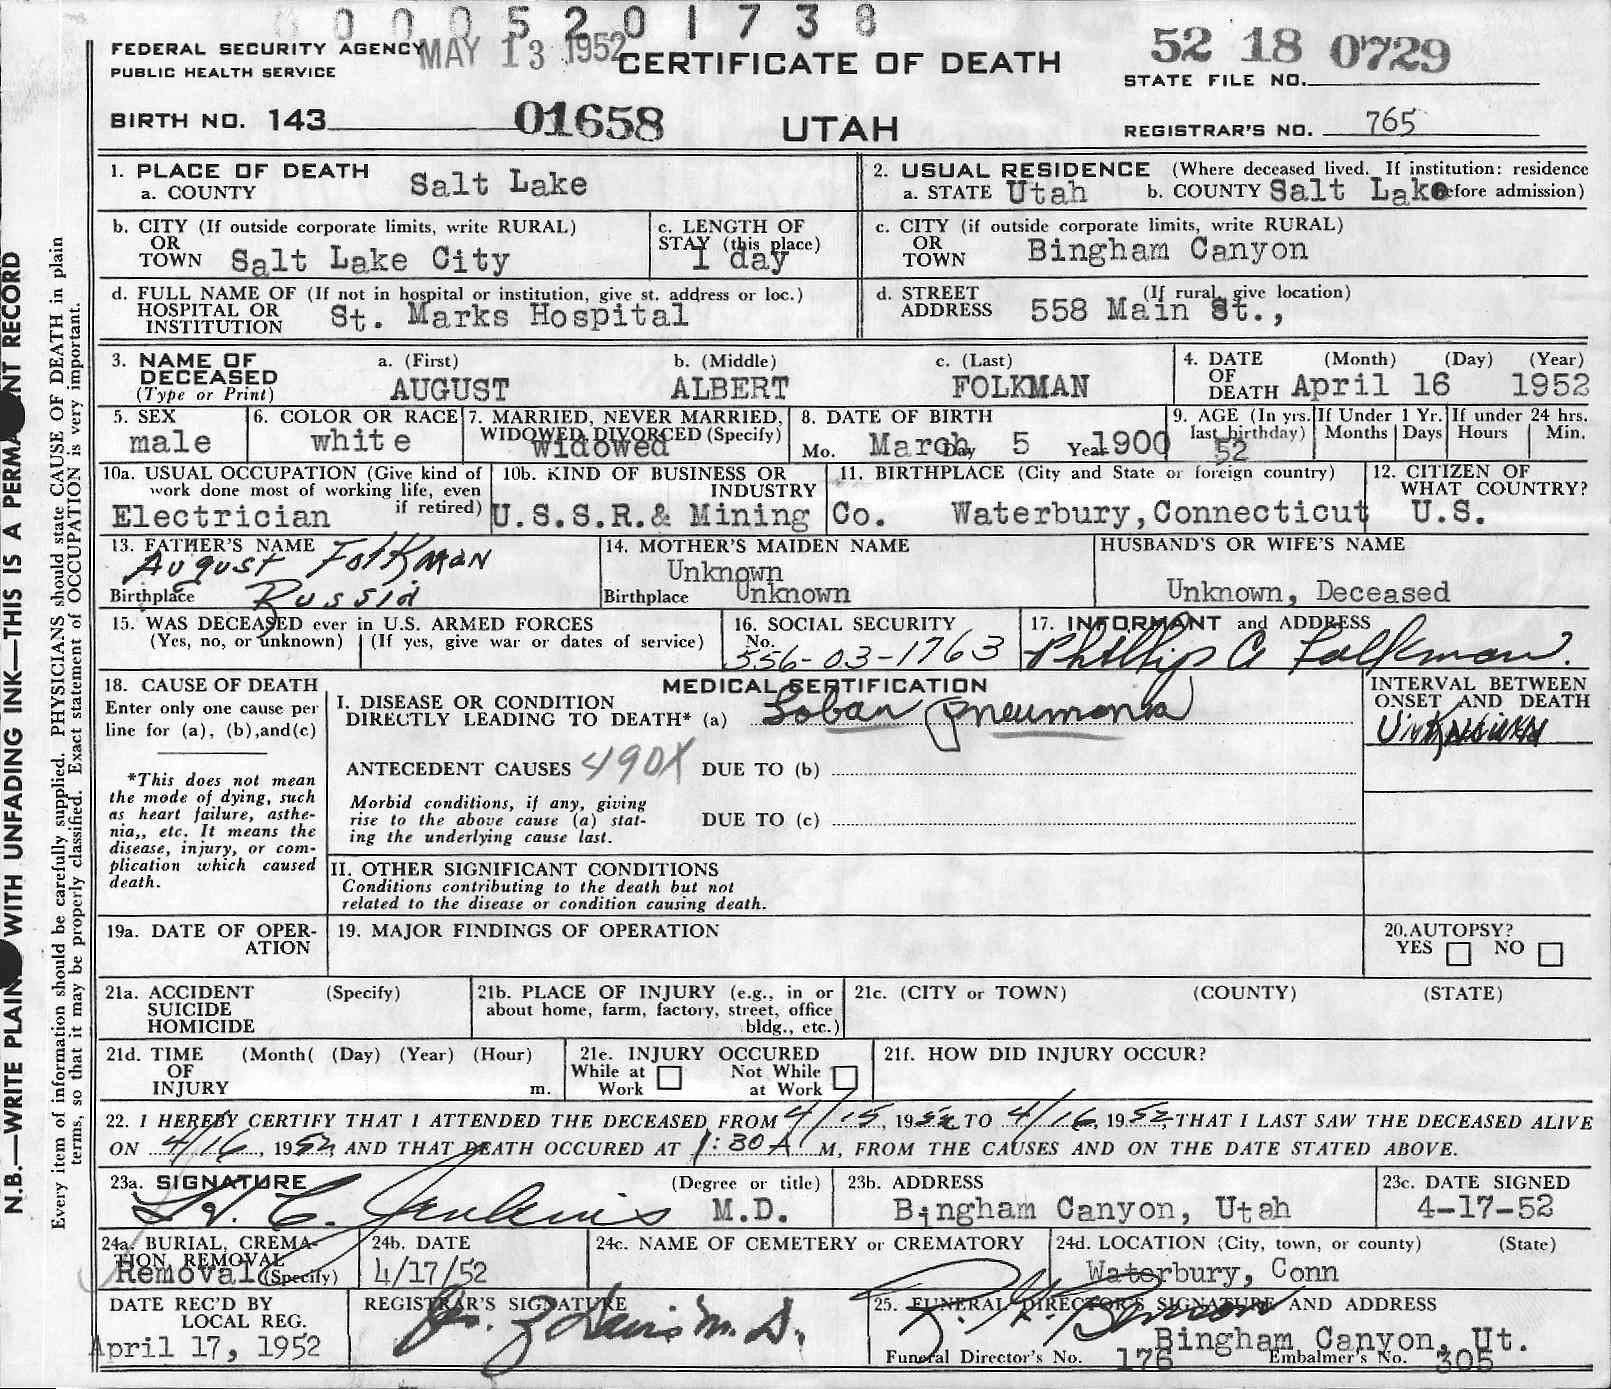 0 0 0 5 2 0 1 7 3 8
FEDERAL SECURITY AGENCY
PUBLIC HEALTH SERVICE
MAY 13 1952
CERTIFICATE OF DEATH
52 18 0729
STATE FILE NO.
BIRTH NO. 143
01658
UTAH
REGISTRAR'S NO. 765
1. PLACE OF DEATH
a. COUNTY Salt Lake
2. USUAL RESIDENCE (Where deceased lived. If institution: residence
a. STATE Utah b. COUNTY Salt Lake before admission)
b. CITY (If outside corporate limits, write RURAL)
OR
TOWN Salt Lake City
c. LENGTH OF
STAY (this place)
1 day
c. CITY (if outside corporate limits, write RURAL)
OR
TOWN Bingham Canyon
d. FULL NAME OF (If not in hospital or institution, give st. address or loc.)
HOSPITAL OR
INSTITUTION St. Marks Hospital
d. STREET (If rural, give location)
ADDRESS 558 Main St.,
3. NAME OF
DECEASED
(Type or Print)
a. (First) b. (Middle) c. (Last)
AUGUST ALBERT FOLKMAN
4. DATE (Month) (Day) (Year)
OF
DEATH April 16 1952
5. SEX
male
6. COLOR OR RACE
white
7. MARRIED, NEVER MARRIED,
WIDOWED, DIVORCED (Specify)
widowed
8. DATE OF BIRTH
Mo. March Day 5 Year 1900
9. AGE (In yrs.
last birthday)
52
If Under 1 Yr.
Months Days
If under 24 hrs.
Hours Min.
10a. USUAL OCCUPATION (Give kind of
work done most of working life, even
if retired)
Electrician
10b. KIND OF BUSINESS OR
INDUSTRY
U.S.S.R.& Mining Co.
11. BIRTHPLACE (City and State or foreign country)
Waterbury, Connecticut
12. CITIZEN OF
WHAT COUNTRY?
U.S.
13. FATHER'S NAME
August Folkman
Birthplace Russia
14. MOTHER'S MAIDEN NAME
Unknown
Birthplace Unknown
HUSBAND'S OR WIFE'S NAME
Unknown, Deceased
15. WAS DECEASED ever in U.S. ARMED FORCES
(Yes, no, or unknown) (If yes, give war or dates of service)
16. SOCIAL SECURITY
No.
556-03-1763
17. INFORMANT and ADDRESS
Phillip A Folkman.
18. CAUSE OF DEATH
Enter only one cause per
line for (a), (b),and(c)
*This does not mean
the mode of dying, such
as heart failure, asthe-
nia,, etc. It means the
disease, injury, or com-
plication which caused
death.
MEDICAL CERTIFICATION
I. DISEASE OR CONDITION
DIRECTLY LEADING TO DEATH* (a) Lobar Pneumonia
ANTECEDENT CAUSES 490X DUE TO (b)
Morbid conditions, if any, giving
rise to the above cause (a) stat-
ing the underlying cause last.
DUE TO (c)
II. OTHER SIGNIFICANT CONDITIONS
Conditions contributing to the death but not
related to the disease or condition causing death.
INTERVAL BETWEEN
ONSET AND DEATH
Unknown
19a. DATE OF OPER-
ATION
19. MAJOR FINDINGS OF OPERATION
20.AUTOPSY?
YES NO
21a. ACCIDENT (Specify)
SUICIDE
HOMICIDE
21b. PLACE OF INJURY (e.g., in or
about home, farm, factory, street, office
bldg., etc.)
21c. (CITY or TOWN) (COUNTY) (STATE)
21d. TIME (Month( (Day) (Year) (Hour)
OF
INJURY m.
21e. INJURY OCCURED
While at Not While
Work at Work
21f. HOW DID INJURY OCCUR?
22. I HEREBY CERTIFY THAT I ATTENDED THE DECEASED FROM 4/15, 1952 TO 4/16, 1952, THAT I LAST SAW THE DECEASED ALIVE
ON 4/16, 1952, AND THAT DEATH OCCURED AT 1:30 A M, FROM THE CAUSES AND ON THE DATE STATED ABOVE.
23a. SIGNATURE (Degree or title)
H. C. Jenkins M.D.
23b. ADDRESS
Bingham Canyon, Utah
23c. DATE SIGNED
4-17-52
24a. BURIAL, CREMA-
TION REMOVAL
Removal (Specify)
24b. DATE
4/17/52
24c. NAME OF CEMETERY or CREMATORY
24d. LOCATION (City, town, or county) (State)
Waterbury, Conn
DATE REC'D BY
LOCAL REG.
April 17, 1952
REGISTRAR'S SIGNATURE
M.D.
25. FUNERAL DIRECTOR'S SIGNATURE AND ADDRESS
Bingham Canyon, Ut.
Funeral Director's No. 176 Embalmer's No. 305
N.B.—WRITE PLAIN WITH UNFADING INK—THIS IS A PERMANENT RECORD
Every item of information should be carefully supplied. PHYSICIANS should state CAUSE OF DEATH in plain
terms, so that it may be properly classified. Exact statement of OCCUPATION is very important.